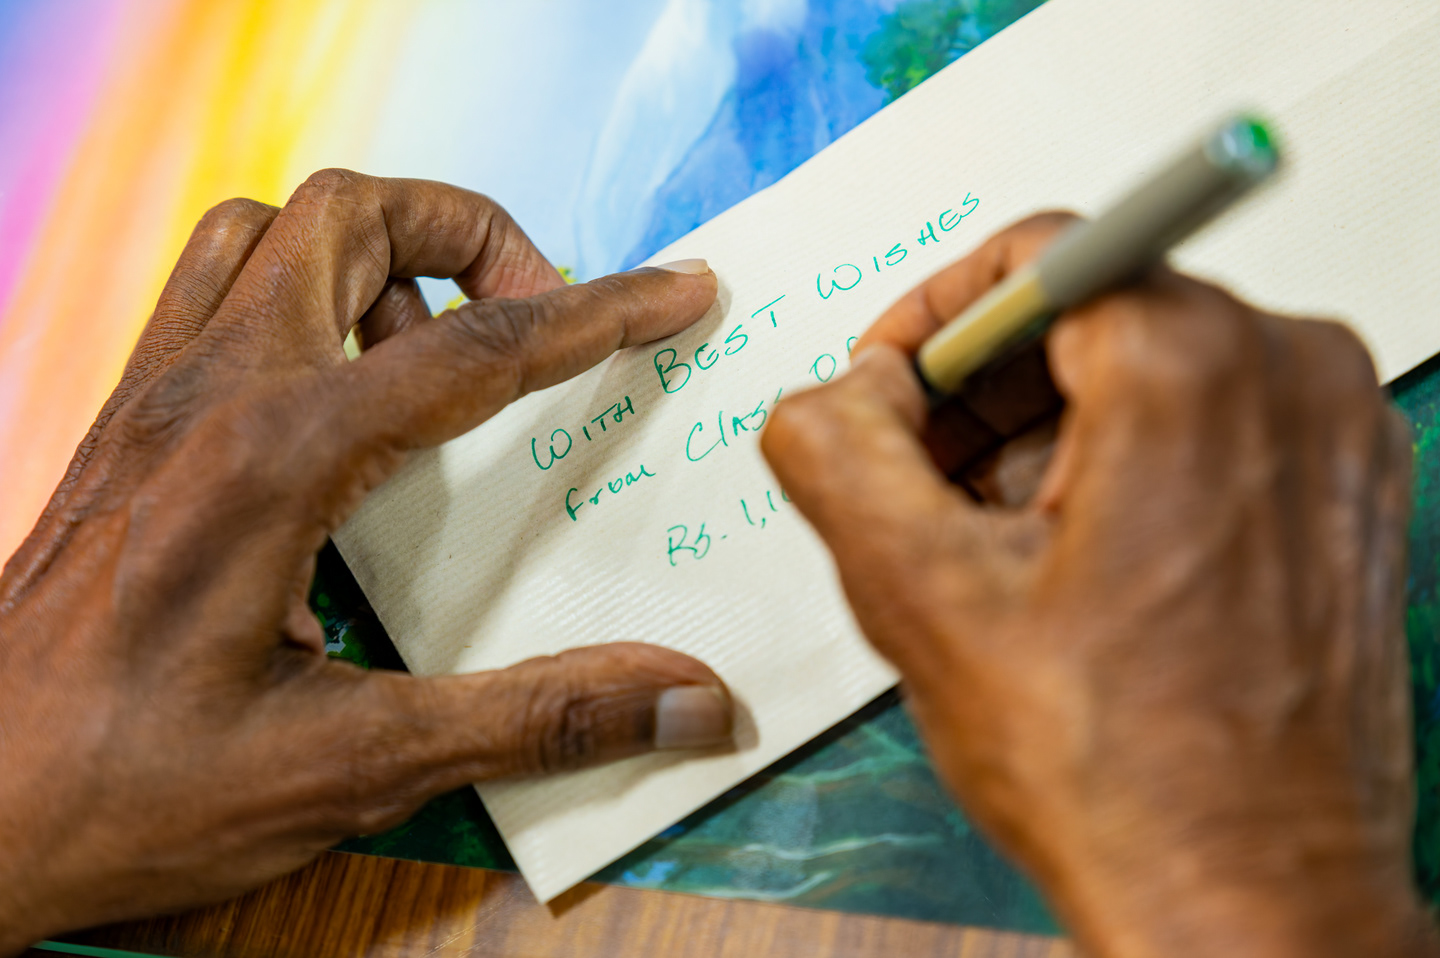 WITH BEST WISHES
From Class OF
Rs. 1,1